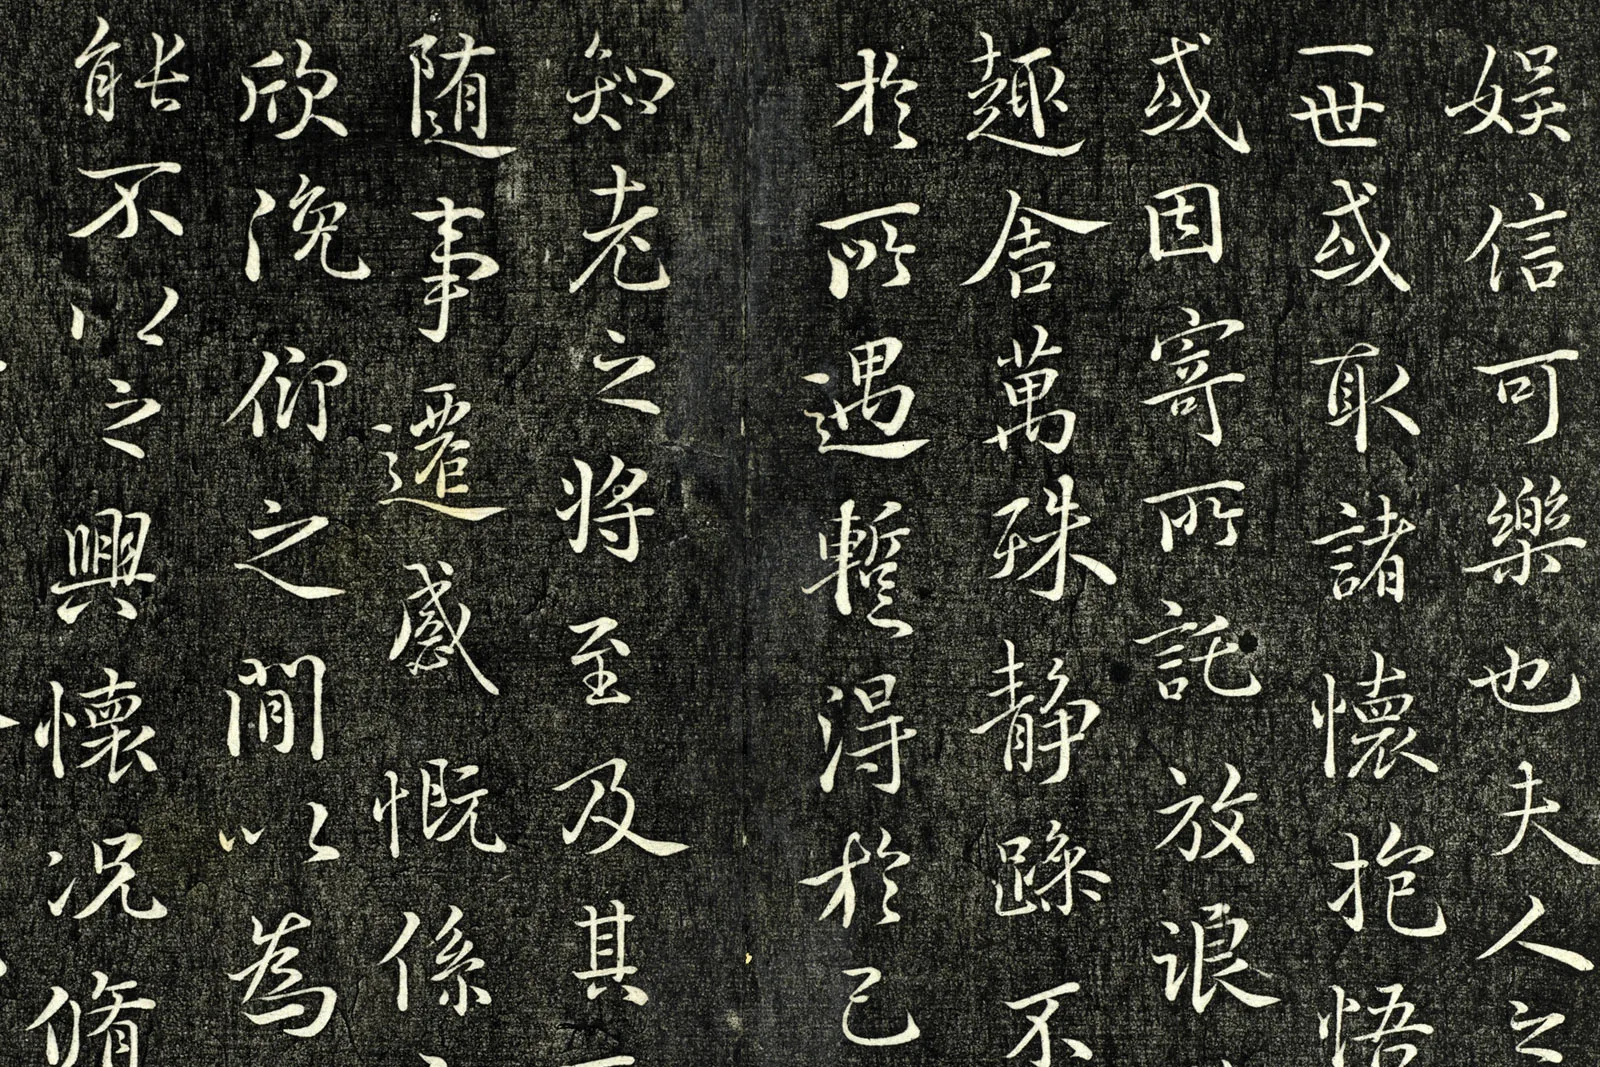 娛信可樂也夫人之
一世或取諸懷抱悟
或因寄所託放浪
趣舍萬殊静躁不
於所遇蹔得於己
知老之將至及其
随事遷感慨係
欣俛仰之間以為
能不以之興懷况脩